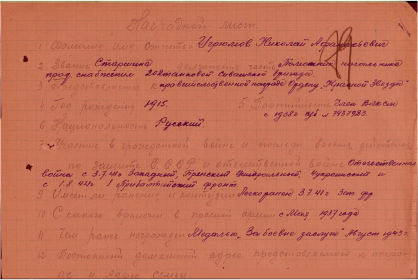 Наградной лист
1 Фамилия, имя, отчество Угрюмов Николай Афанасьевич
2 Звание Старшина должность, часть Помошник начальника
прод. снабжения 202 танковой Сивашской бригады
3 Представляется к правительственной награде Ордену "Красной Звезды"
4 Год рождения 1915 5. Партийность Член ВКП(б)
с п/б № 7437983
6 Национальность Русский
7 Участие в гражданской войне и последующих боевых действиях
по защите СССР и отечественной войне Отечественная
война с 3.7.41г Западный, Брянский Центральный, Украинский и
с 1.8.44г 1 Прибалтийский фронт
9 Имеет ли ранения и контузии 3.7.41г Зап. фр
10 С какого времени в красной армии с Мая 1937 года
11 Чем ранее награжден Медалью "За боевые заслуги" Август 1943г
12 Постоянный домашний адрес представляемого к
и адрес семьи